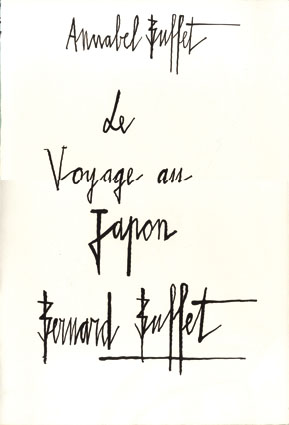 Annabel Buffet
Le
Voyage au
Japon
Bernard Buffet